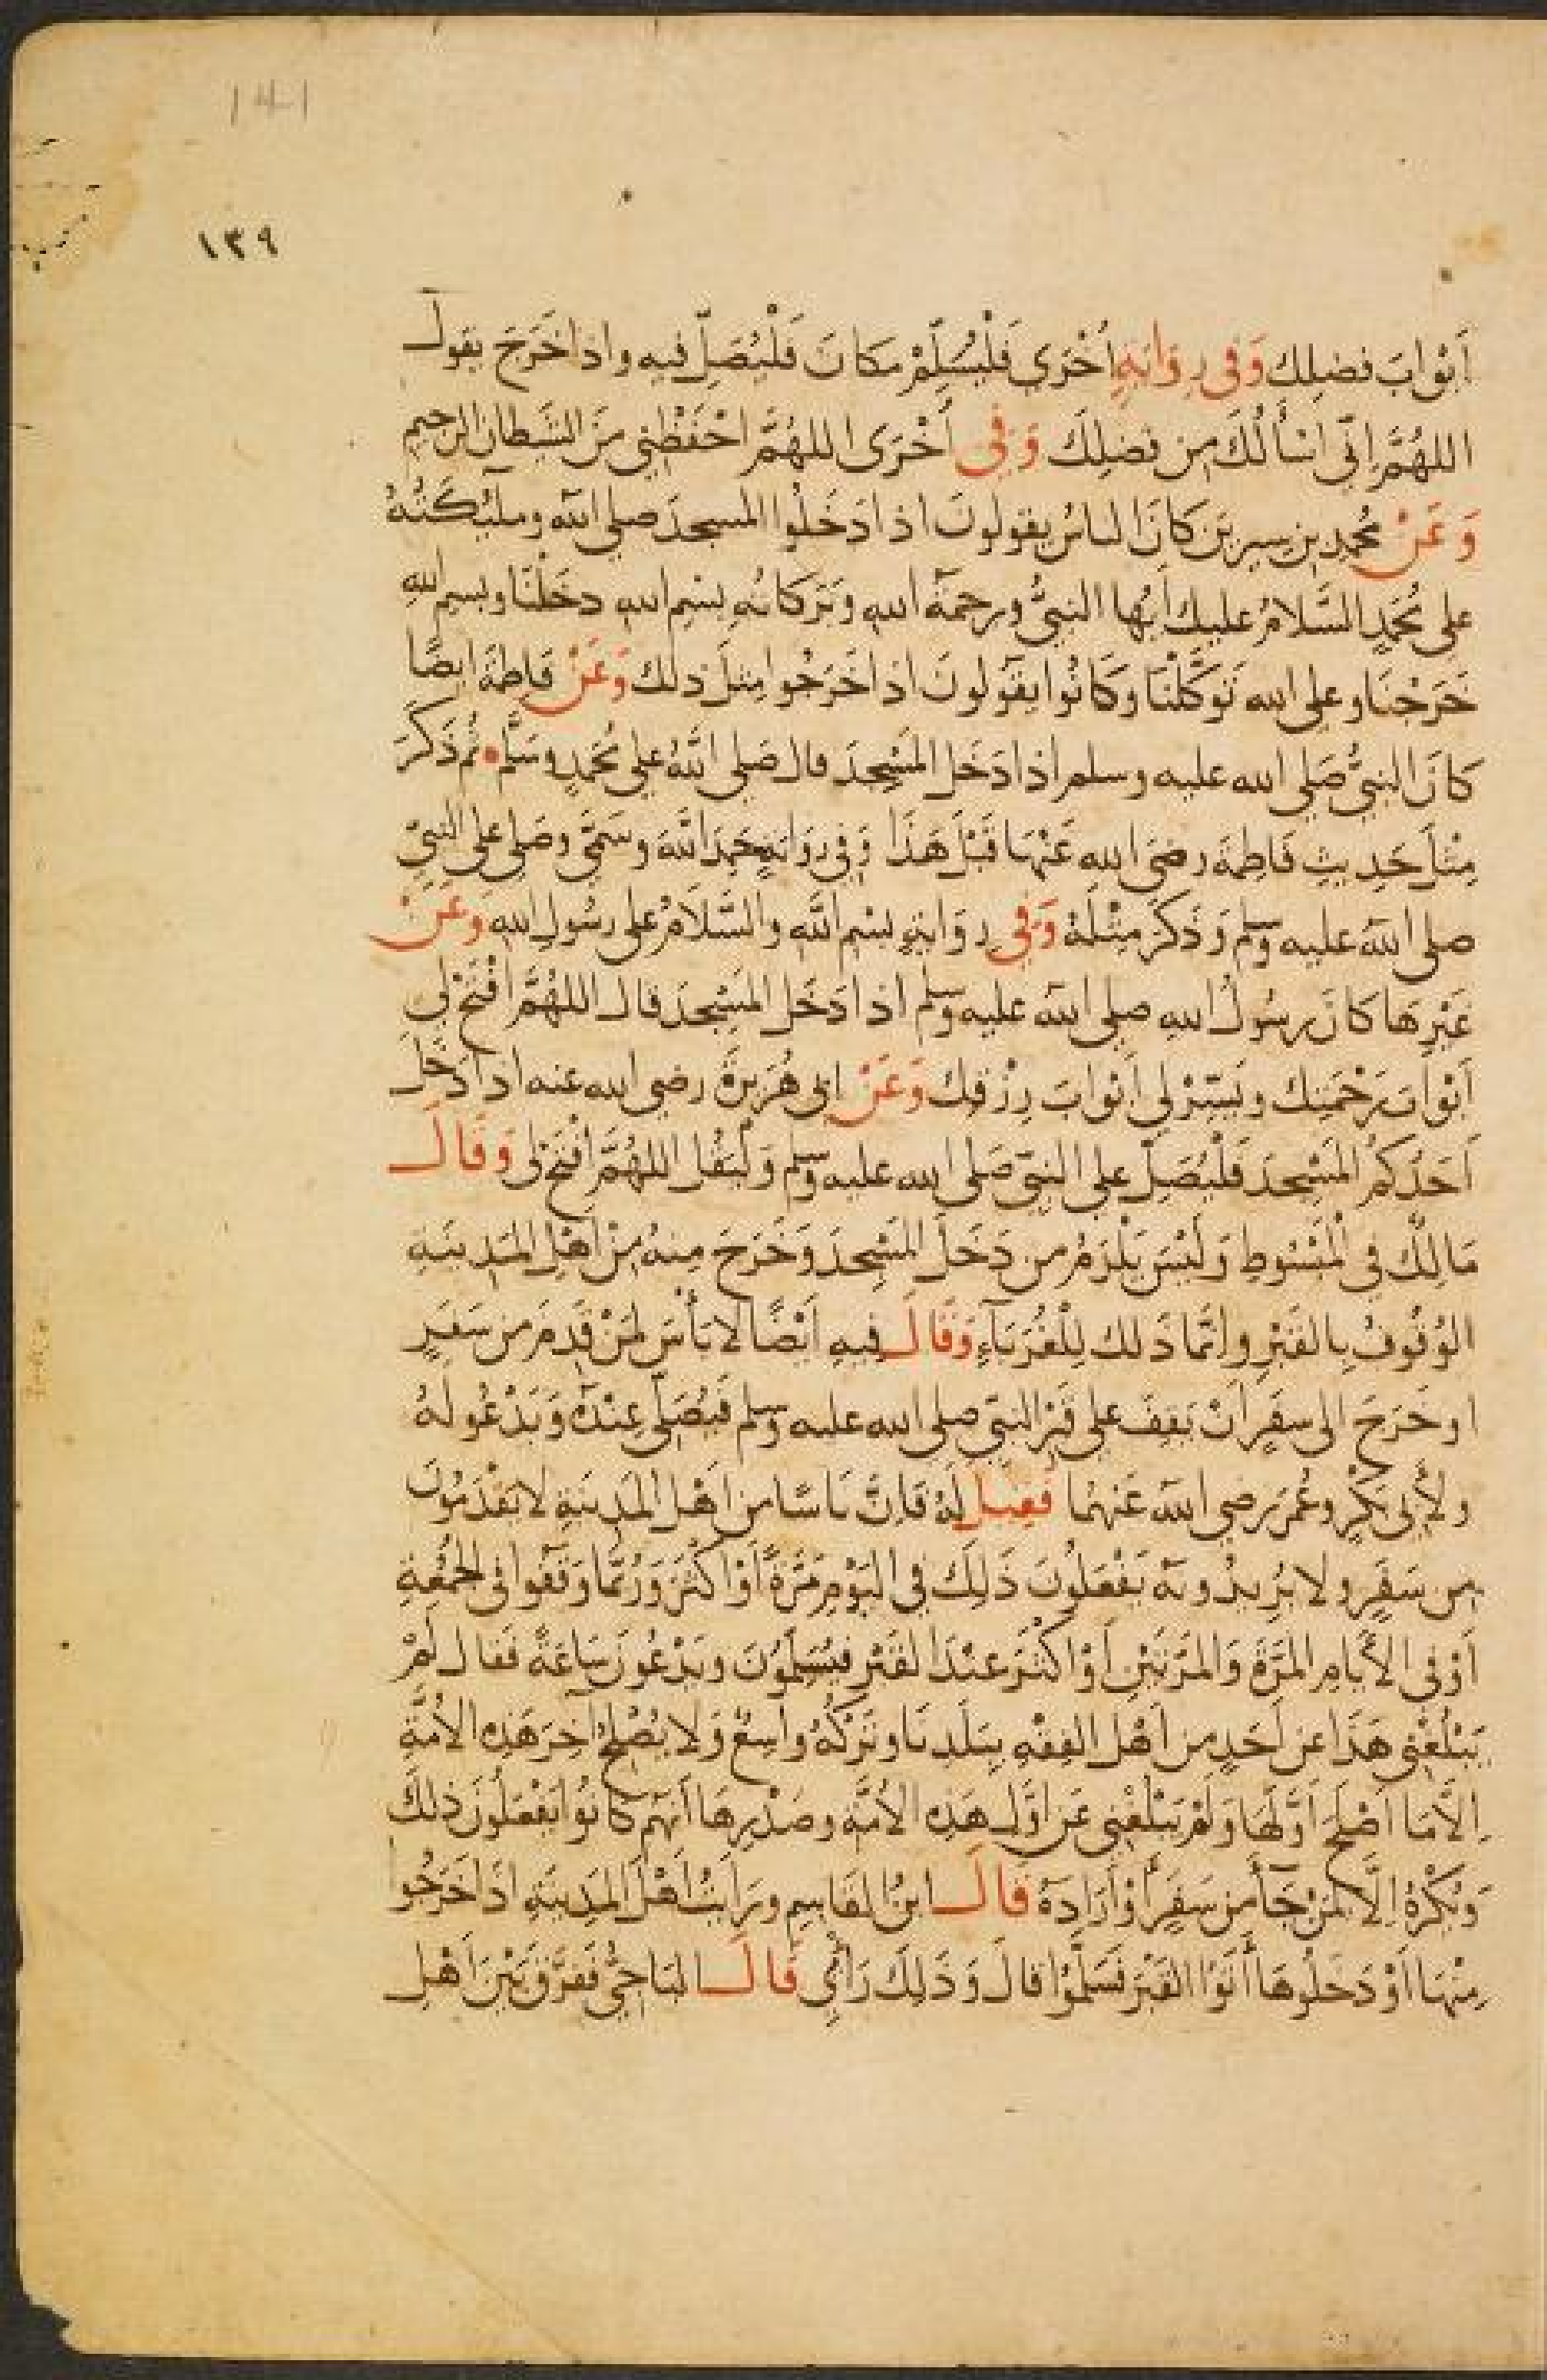 141
١٣٩
أَبْوابَ فضلِك وَفى رِوَايَةٍ أُخْرَى فَلْيُسَلِّمْ مَكَانَ فَلْيُصَلِّ فيه واذا خَرَجَ يقول
اللهُمَّ إِنّى اسْأَلُكَ مِن فضلِكَ وَفِي أُخْرَى اللهُمَّ احْفَظْنِى مِنَ الشيطانِ الرجيم
وَعَنْ مُحمدِ بنِ سيرينَ كَانَ الناسُ يقولونَ اذا دَخَلُوا المسجدَ صلى الله وملئِكَتُهُ
على مُحَمَّدٍ السَّلامُ عليك أيُّها النبىُّ ورحمةُ الله وَبَرَكَاتُه بِسْمِ الله دخَلْنَا وبسمِ الله
خَرَجْنَا وعلى الله تَوَكَّلْنَا وَكَانُوا يقولونَ اذا خَرَجُوا مِثلَ ذلك وَعَنْ فاطمَةَ ايضًا
كَانَ النبىُّ صَلى الله عليه وسلم اذا دَخَلَ المَسْجِدَ قال صَلى اللهُ على مُحَمدٍ وسَلَّم ثُم ذَكَرَ
مِثْلَ حَدِيثِ فَاطِمَةَ رضىَ الله عَنْهَا قَبْلَ هَذَا وَفِى رِوَايَةٍ حَمِدَ اللهَ وسَمَّى وصَلى على النبىّ
صلى الله عليه وسلم وَذَكَرَ مِثْلَهُ وَفِي رِوَايَةٍ بِسْمِ الله والسَّلَامُ على رسُولِ الله وَعَنْ
غَيْرِهَا كَانَ رسُولُ الله صلى الله عليه وسلم اذا دَخَلَ المَسْجِدَ قال اللهُمَّ افْتَحْ لِي
أَبْوابَ رَحْمَتِك ويَسِّرْ لى أبْوَابَ رِزْقِك وَعَنْ ابى هُرَيرةَ رضى الله عنه اذا دَخَلَ
أَحَدُكُمُ المَسْجِدَ فَلْيُصَلِّ على النبىّ صَلى الله عليه وسلم وَلْيَقُل اللهُمَّ افْتَحْ لى وَقَالَ
مَالِكٌ فِى الْمَبْسُوطِ وَلَيْسَ يَلْزَمُ مَن دَخَلَ المَسْجِدَ وَخَرَجَ مِنهُ مِنْ أَهْلِ المَدِينَةِ
الوُقُوفُ بِالقَبْرِ وإنَّمَا ذَلك لِلْغُرَبَآءِ وَقَالَ فيهِ أَيْضًا لَا بَأْسَ لِمَنْ قَدِمَ مِن سَفَرٍ
او خَرَجَ الى سفَرٍ انْ يَقِفَ على قَبْرِ النبىّ صلى الله عليه وسلم فَيُصَلِّى عِنْدَهُ وَيَدْعُو لَهُ
ولأَبى بَكْرٍ وعُمَرَ رضى الله عَنْهما فَقِيلَ لَهُ فَإنَّ نَاسًا من أَهْلِ المَدِينَةِ لا يَقْدَمُونَ
مِن سَفَرٍ ولا يُريدُونَهُ يَفْعَلُونَ ذَلِكَ فِى اليَوْمِ مَرَّةً أَوْ اكْثَرَ وَرُبَّمَا وَقَفُوا فى الجُمُعَةِ
أَوْ فى الأَيَّامِ المَرَّةَ وَالمَرَّتَيْنِ أَوْ اكْثَرَ عِنْدَ القَبْرِ فيُسَلِّمُونَ ويَدْعُونَ سَاعَةً فَقال لَمْ
يَبْلُغْنِى هَذَا عن أَحَدٍ من أَهْلِ الفِقْهِ بِبَلَدِنَا وَتَرْكُهُ واسِعٌ وَلا يصْلِحُ آخِرَ هَذِه الأُمَّةِ
إلَّا مَا أَصْلَحَ أَوَّلَهَا وَلَمْ يَبْلُغْنِى عَن اوَّلِ هَذِه الأُمَّةِ وصَدْرِهَا أَنَّهُم كَانُوا يَفْعَلُونَ ذَلكَ
وَيُكْرَهُ إلَّا لِمَنْ جَآءَ مِن سَفَرٍ أَوْ أَرَادَهُ قَالَ ابنُ القَاسِمِ ورَأَيتُ أَهْلَ المَدِينَةِ اذَا خَرَجُوا
مِنْهَا أَوْ دَخَلُوهَا أَتَوُا القَبْرَ فَسَلَّمُوا قالَ وَذَلِكَ رَأْيِي قَالَ البَاجِىُّ فَفَرَّقَ بَيْنَ أَهْلِ